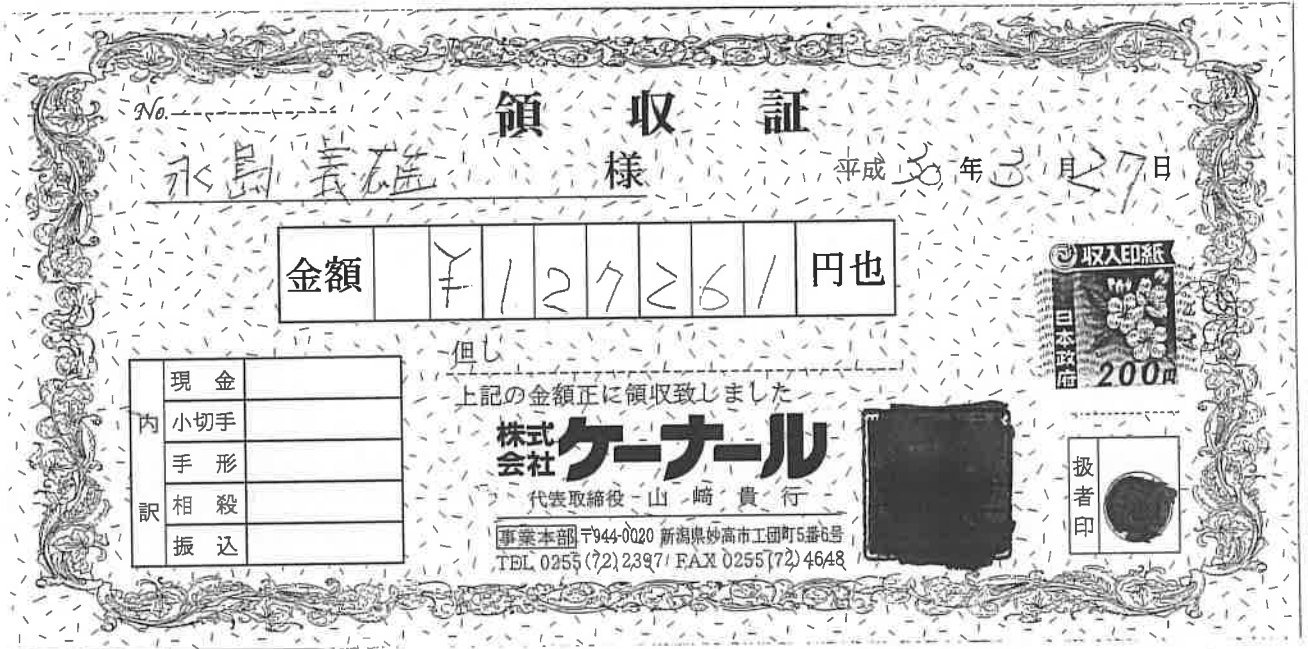 No.
領収証
永島義雄 様
平成30年3月27日
金額 ¥127261 円也
収入印紙
日本政府
200円
但し
上記の金額正に領収致しました
内訳
現金
小切手
手形
相殺
振込
株式会社ケーナール
代表取締役 山﨑貴行
事業本部 〒944-0020 新潟県妙高市工団町5番6号
TEL 0255(72)2397/FAX 0255(72)4648
扱者印